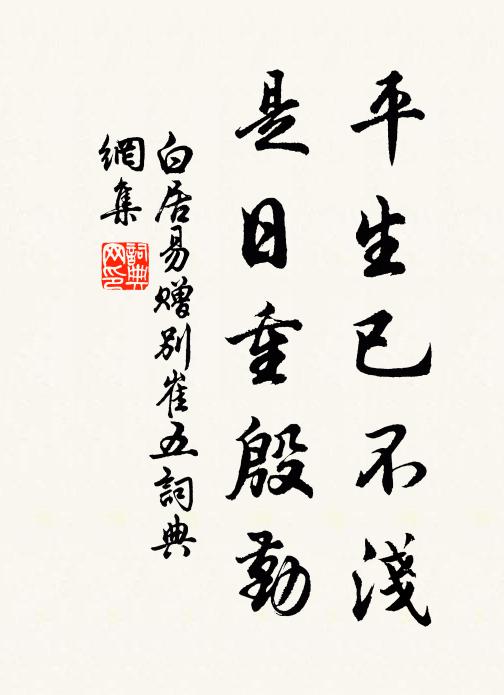 平生已不淺
是日重殷勤
白居易贈別崔五詞典
網集
詞典
网印